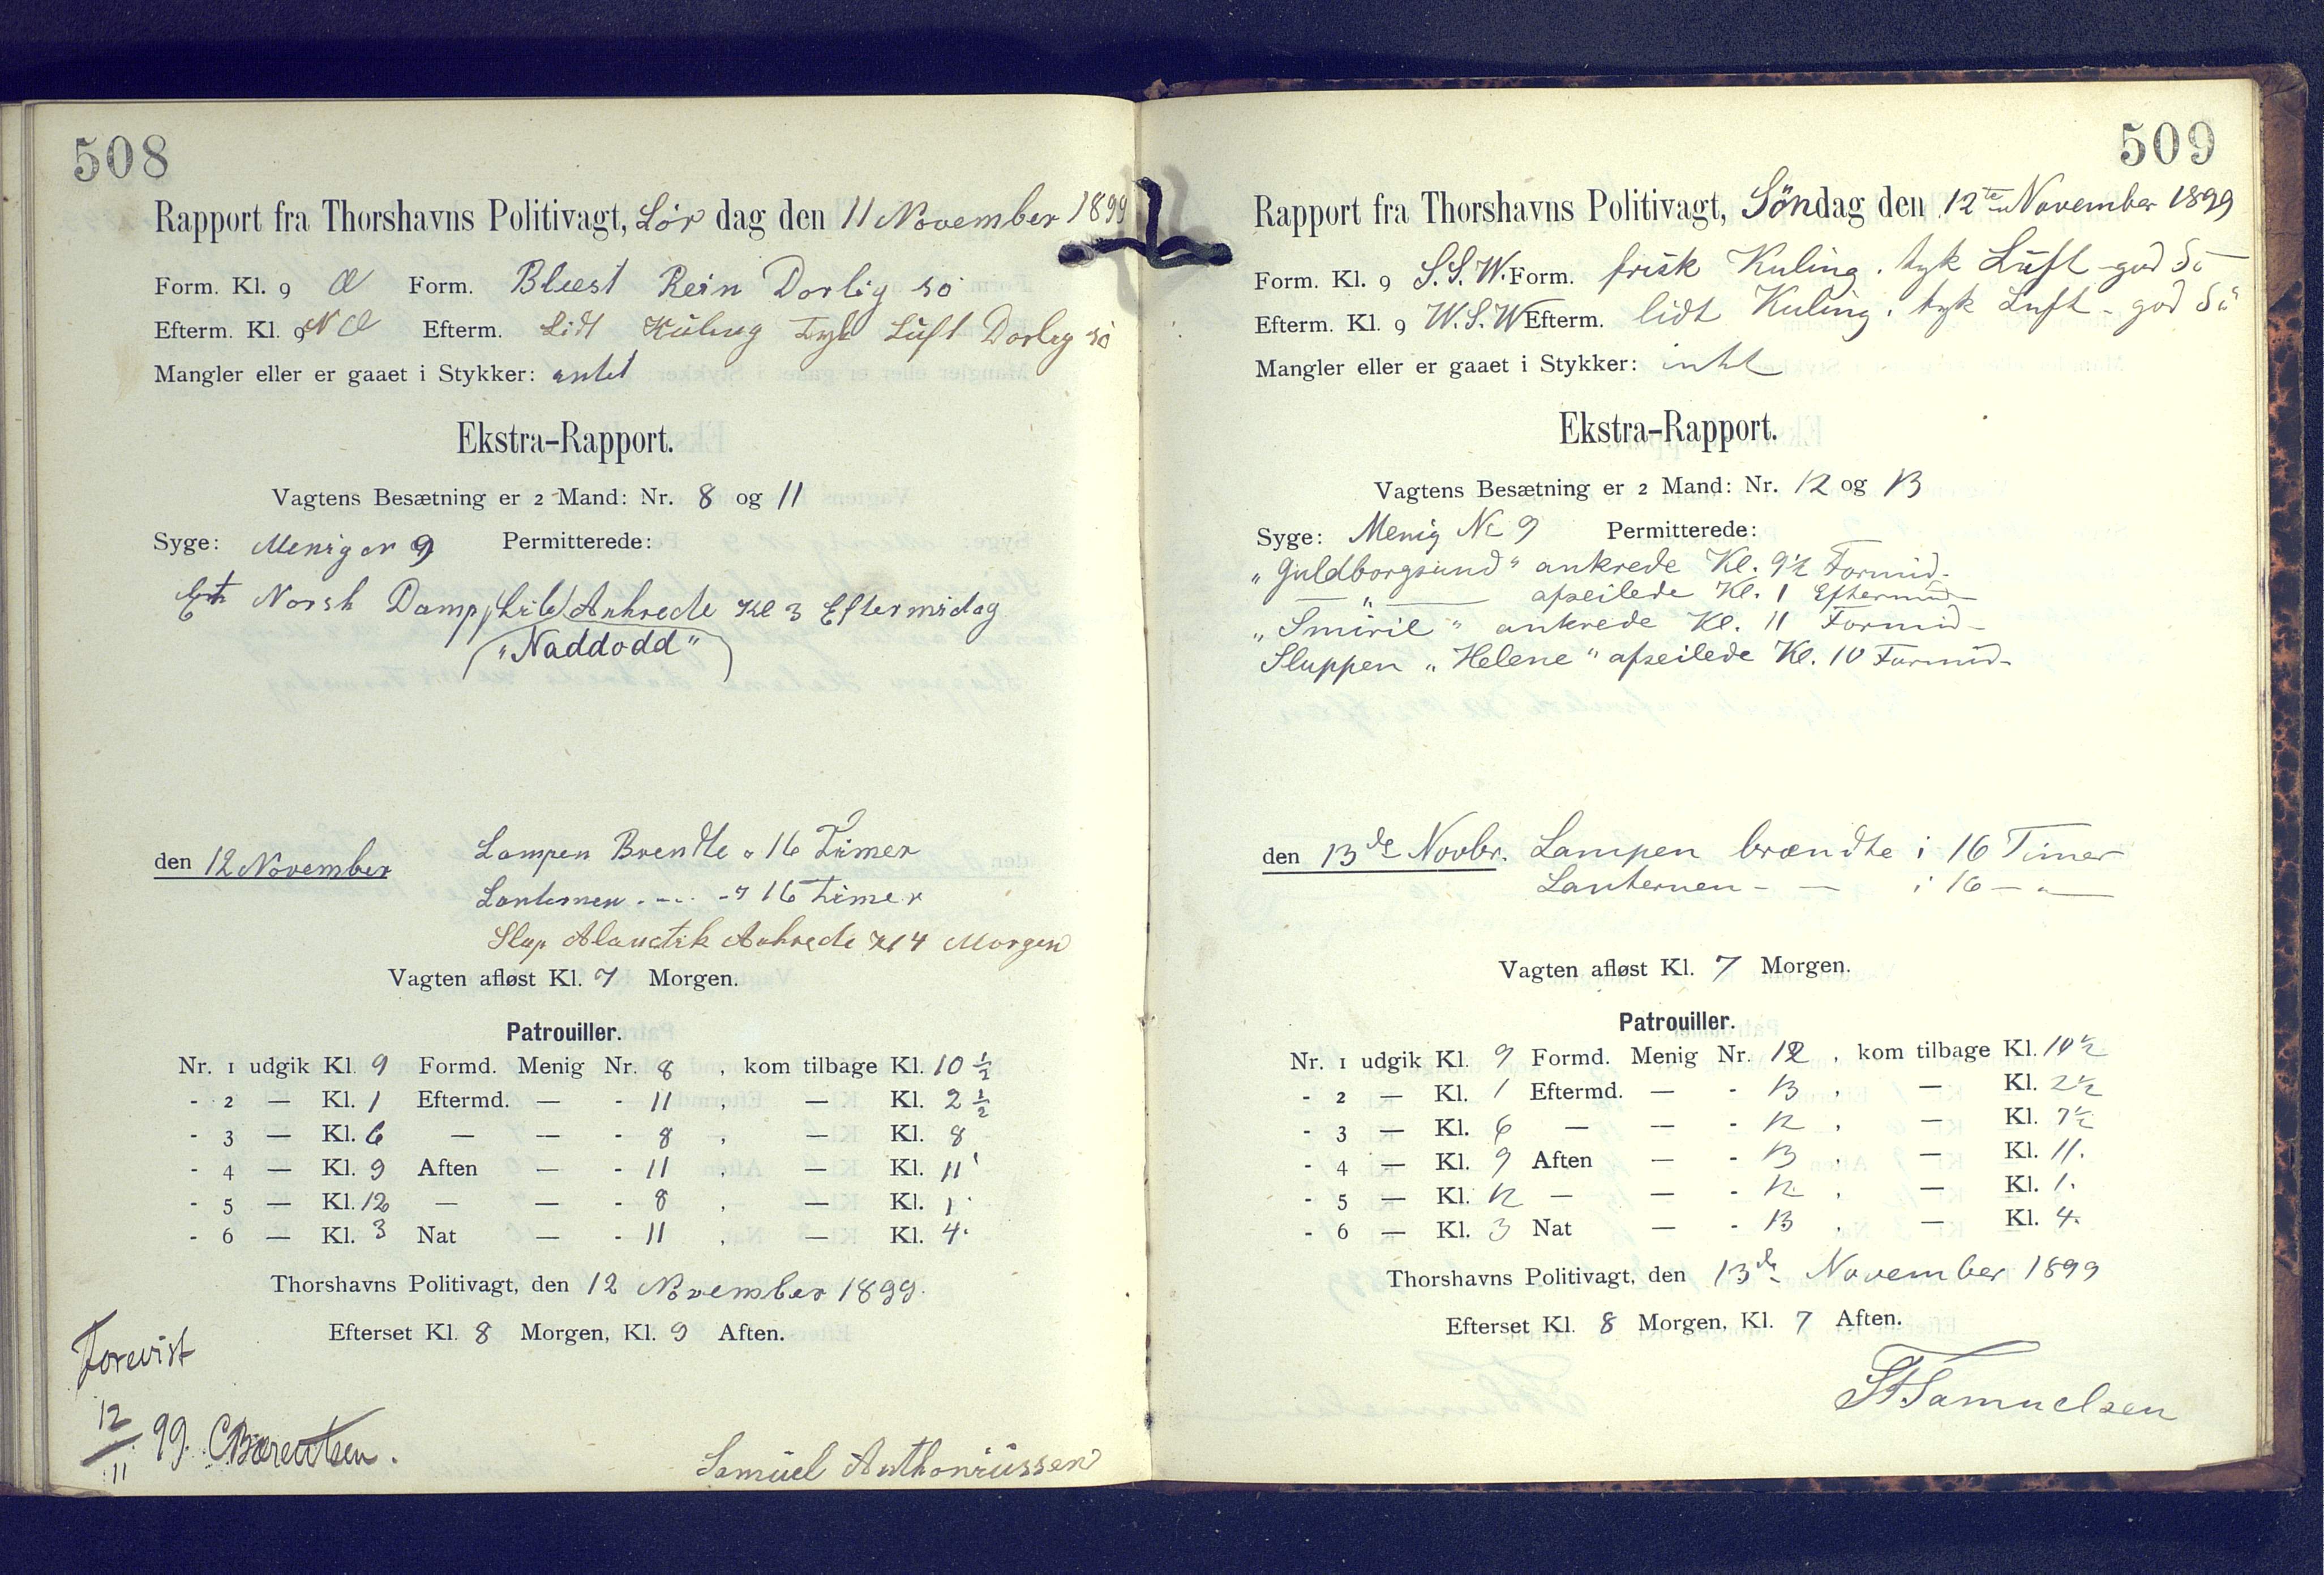 508
Rapport fra Thorshavns Politivagt, Lör dag den 11 November 1899
Form. Kl. 9 Œ Form. Blæst Rein Dorlig sö
Efterm. Kl. 9 N Œ Efterm. Lidt Kúling Tyk Lúft Dorlig sö
Mangler eller er gaaet i Stykker: intet
Ekstra-Rapport.
Vagtens Besætning er 2 Mand: Nr. 8 og 11
Syge: Menig nr 9 Permitterede:
Et Norsk Dampskib Ankrede Kl 3 Eftermidag
"Naddodd"
den 12 November Lampen Brendte 16 Timer
Lanternen - - - 16 Timer
Slup Alanctik Ankrede Kl 4 Morgen
Vagten afløst Kl. 7 Morgen.
Patrouiller.
Nr. 1 udgik Kl. 9 Formd. Menig Nr. 8 , kom tilbage Kl. 10 ½
- 2 — Kl. 1 Eftermd. — - 11 , — Kl. 2 ½
- 3 — Kl. 6 — — - 8 , — Kl. 8
- 4 — Kl. 9 Aften — - 11 , — Kl. 11
- 5 — Kl. 12 — — - 8 , — Kl. 1
- 6 — Kl. 3 Nat — - 11 , — Kl. 4.
Thorshavns Politivagt, den 12 November 1899.
Efterset Kl. 8 Morgen, Kl. 9 Aften.
Forevist
12/11 99. CBærentsen.
Samúel Anthoniússen
509
Rapport fra Thorshavns Politivagt, Söndag den 12te November 1899
Form. Kl. 9 S.S.W. Form. frisk Kuling. tyk Luft god Sö
Efterm. Kl. 9 W.S.W Efterm. lidt Kuling. tyk Luft - god Sö
Mangler eller er gaaet i Stykker: intet
Ekstra-Rapport.
Vagtens Besætning er 2 Mand: Nr. 12 og 13
Syge: Menig No 9 Permitterede:
"Guldborgsund" ankrede Kl. 9½ Formid.
— " — afseilede Kl. 1 Eftermid-
"Smiril" ankrede Kl. 11 Formid-
Sluppen "Helene" afseilede Kl. 10 Formid-
den 13de Novbr. Lampen brændte i 16 Timer
Lanternen - — i 16 — " —
Vagten afløst Kl. 7 Morgen.
Patrouiller.
Nr. 1 udgik Kl. 9 Formd. Menig Nr. 12 , kom tilbage Kl. 10½
- 2 — Kl. 1 Eftermd. — - 13 , — Kl. 2½
- 3 — Kl. 6 — — - 12 , — Kl. 7½
- 4 — Kl. 9 Aften — - 13 , — Kl. 11.
- 5 — Kl. 12 — — - 12 , — Kl. 1.
- 6 — Kl. 3 Nat — - 13 , — Kl. 4.
Thorshavns Politivagt, den 13de November 1899
Efterset Kl. 8 Morgen, Kl. 7 Aften.
Samuelsen